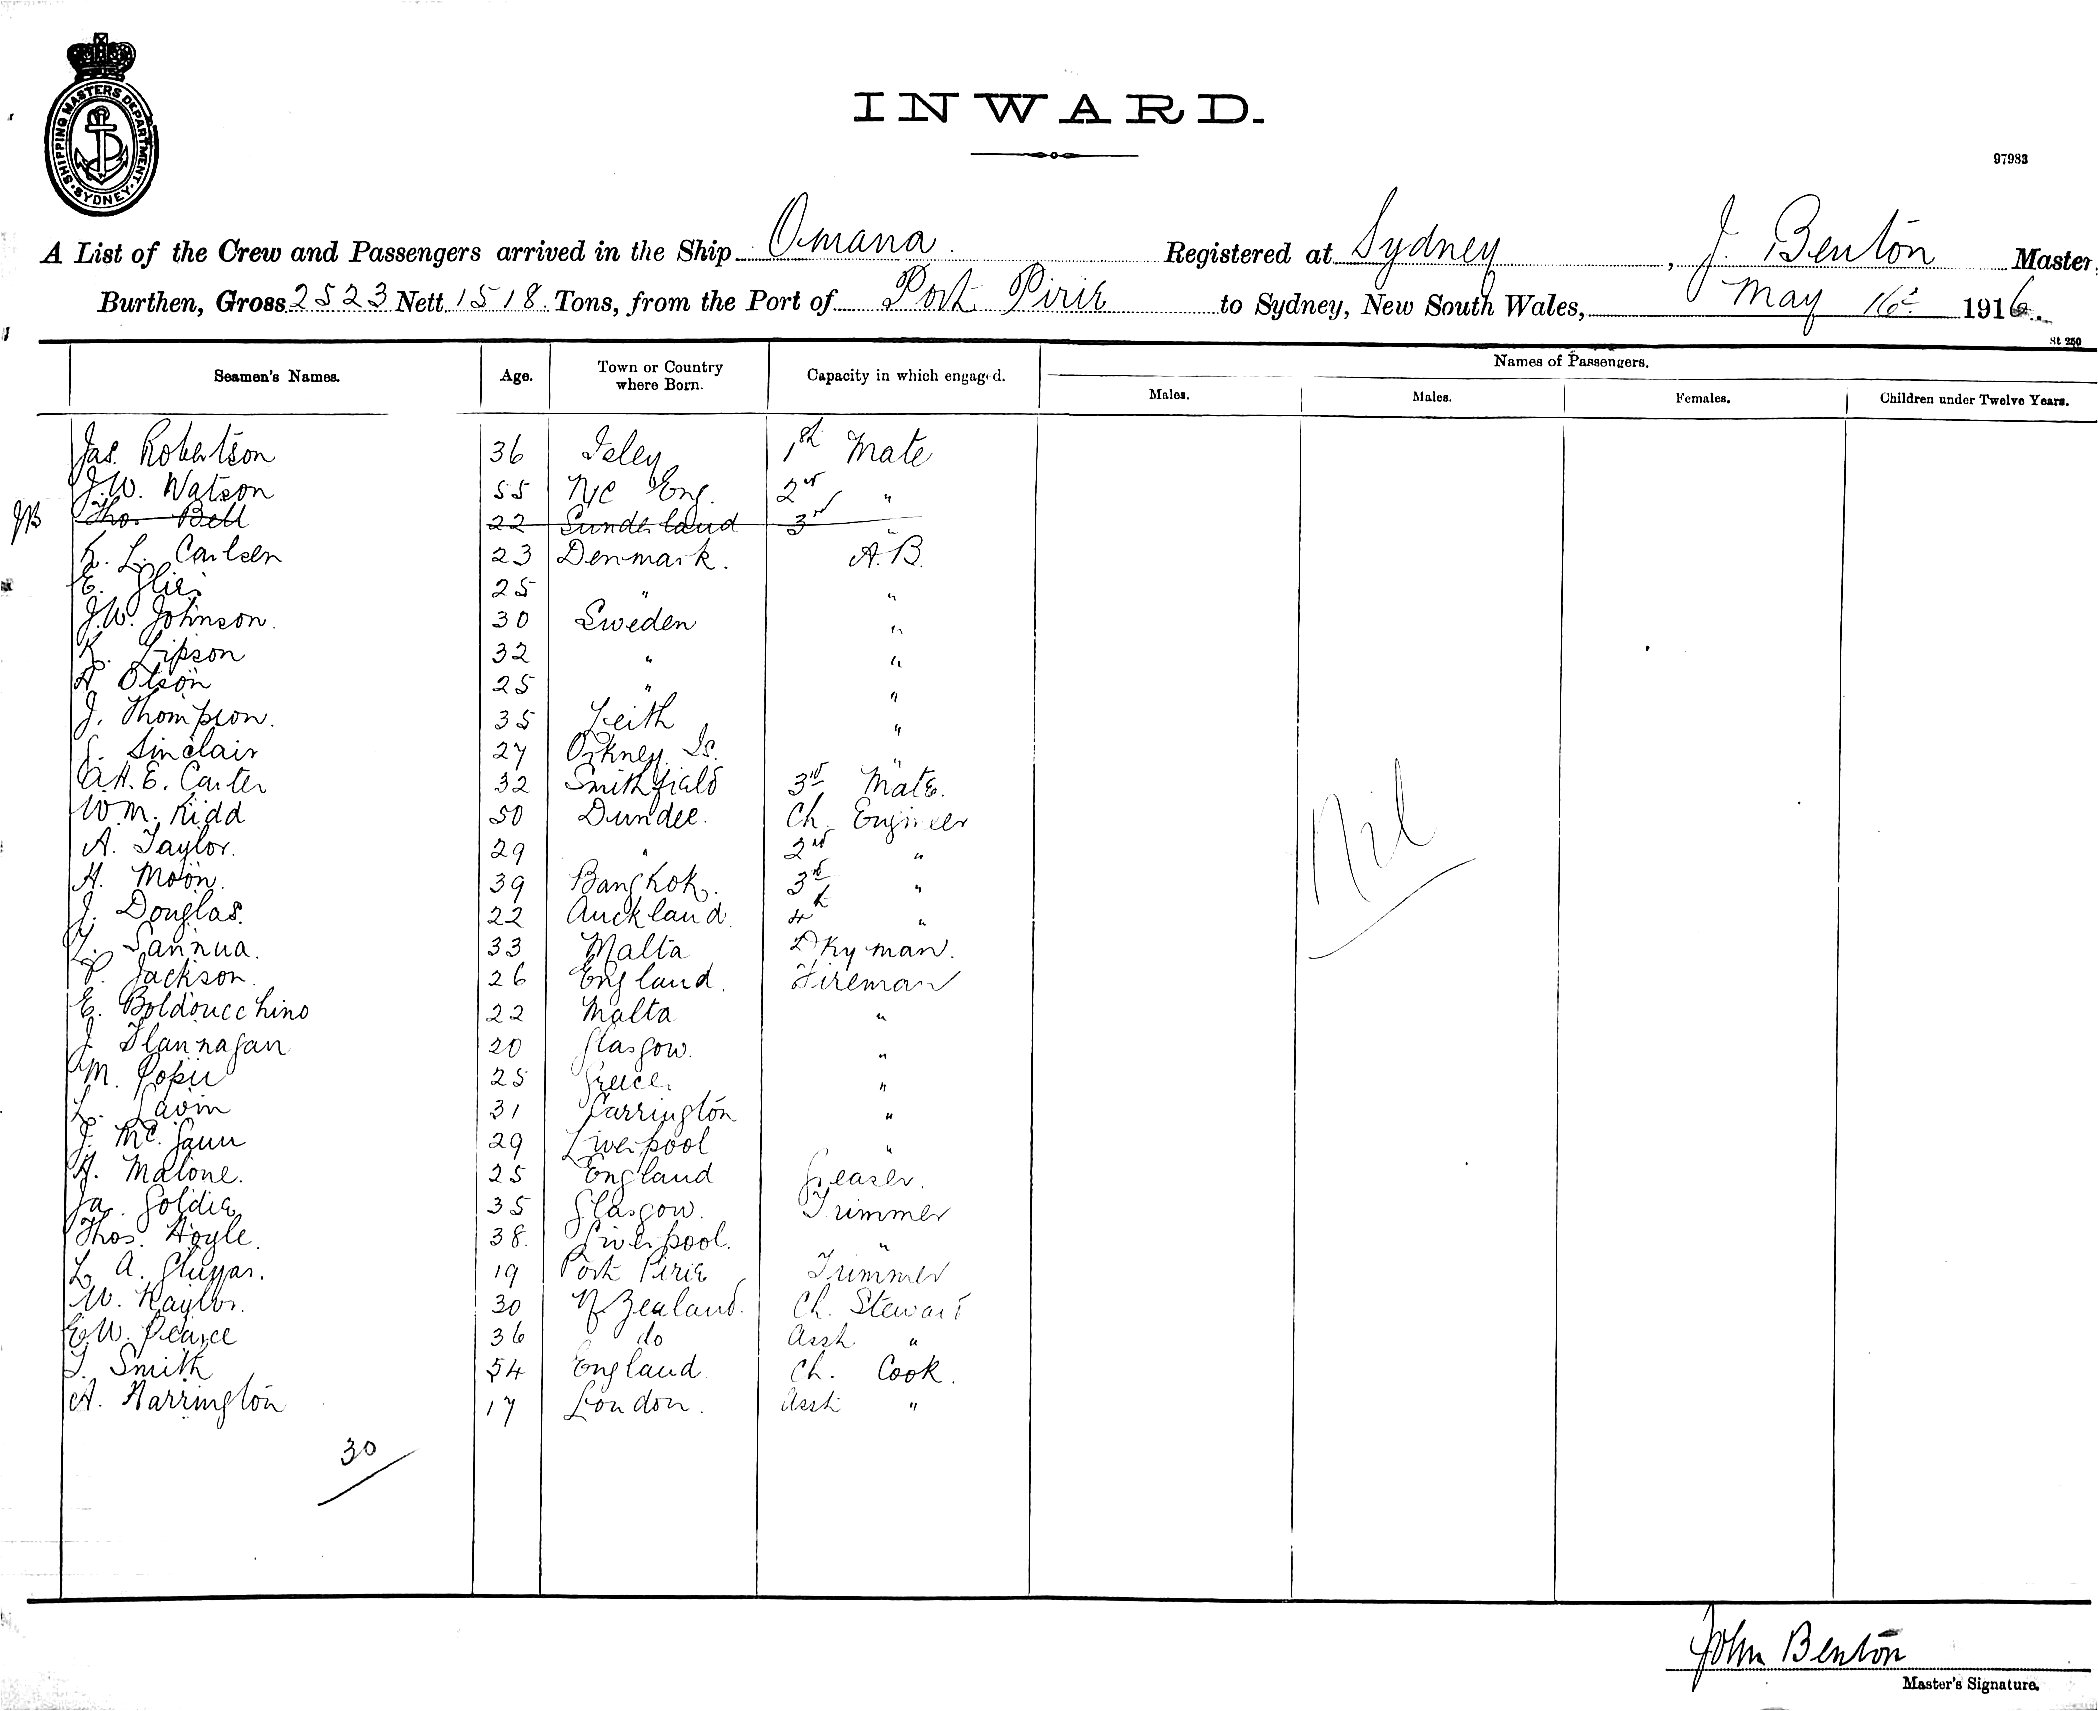 SHIPPING MASTERS DEPARTMENT. SYDNEY
INWARD.
97983
A List of the Crew and Passengers arrived in the Ship Omana Registered at Sydney, J. Benton Master,
Burthen, Gross 2523 Nett 1518 Tons, from the Port of Port Pirie to Sydney, New South Wales, May 16th 1916.
St 250
Seamen's Names. Age. Town or Country where Born. Capacity in which engaged. Names of Passengers.
Males. Males. Females. Children under Twelve Years.
Jas. Robertson 36 Isley 1st Mate
J.W. Watson 55 N/C Eng. 2nd "
JB Thos Bell 22 Sunderland 3rd
K. L. Carlsen 23 Denmark. A.B.
E. 25 " "
J.W. Johnson. 30 Sweden "
K. Lipson 32 " "
A Olson 25 " "
J. Thompson. 35 Leith "
Sinclair 27 Orkney Is. "
A.H.E. Carter 32 Smithfield 3rd Mate.
Wm. Kidd 50 Dundee. Ch. Engineer
A. Taylor. 29 " 2nd "
A. Moon. 39 Bangkok. 3rd "
J. Douglas. 22 Auckland. 4th "
Sannua. 33 Malta Dkyman.
P. Jackson. 26 England. Fireman
E. Boldoucchino 22 Malta "
J. Flannagan 20 Glasgow. "
M. 25 Greece. "
L. Lavin 31 Carrington "
J. Mc.Gann 29 Liverpool "
A. Malone. 25 England Greaser.
Ja. Goldie 35 Glasgow. Trimmer
Thos. Hoyle. 38. Liverpool. "
L. A. 19 Port Pirie Trimmer
W. Naylor. 30 N. Zealand. Ch. Stewart
E.W. Pearce 36 do Asst. "
Smith 54 England Ch. Cook.
A. Harrington 17 London. Asst "
30
Nil
John Benton
Master's Signature.